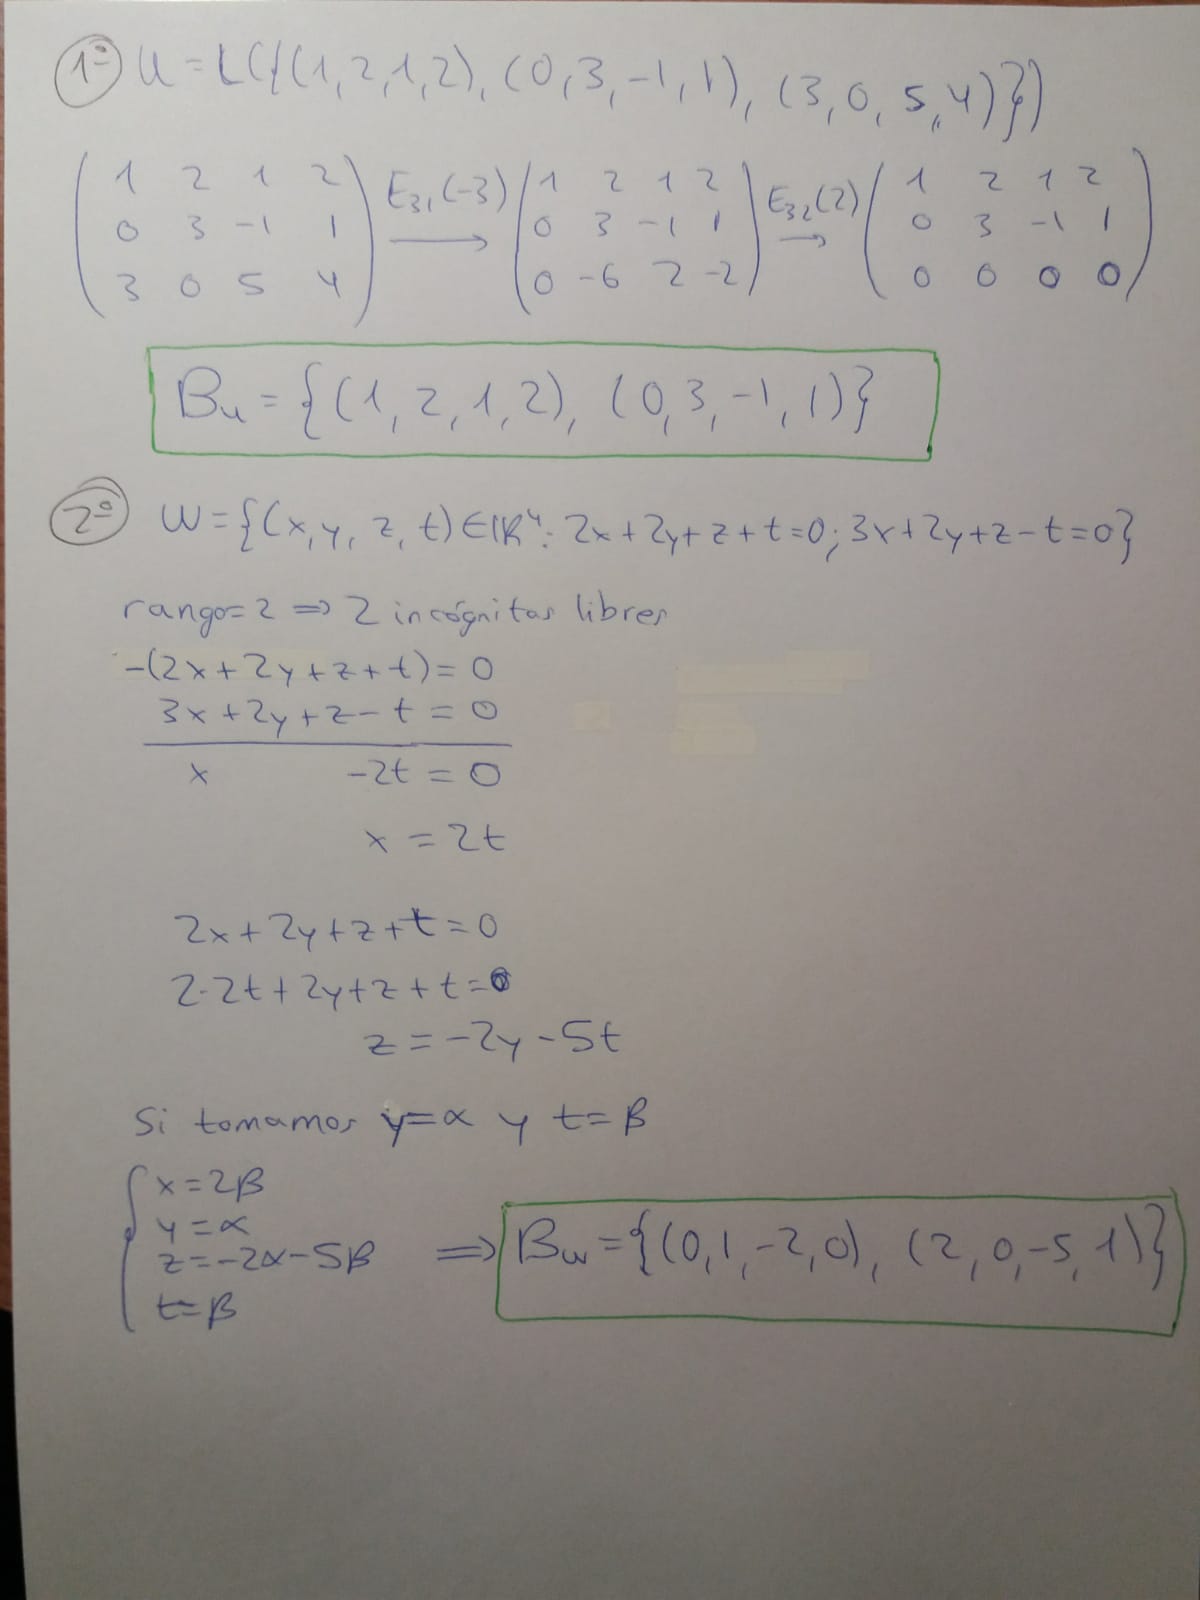 1º U = L({(1,2,1,2), (0,3,-1,1), (3,0,5,4)})
( 1 2 1 2 ; 0 3 -1 1 ; 3 0 5 4 ) E₃₁(-3) → ( 1 2 1 2 ; 0 3 -1 1 ; 0 -6 2 -2 ) E₃₂(2) → ( 1 2 1 2 ; 0 3 -1 1 ; 0 0 0 0 )
Bu = {(1,2,1,2), (0,3,-1,1)}
2º W = {(x,y,z,t) ∈ ℝ⁴: 2x+2y+z+t=0; 3x+2y+z-t=0}
rango=2 => 2 incógnitas libres
-(2x+2y+z+t)=0
3x+2y+z-t=0
x -2t=0
x = 2t
2x+2y+z+t=0
2·2t+2y+z+t=0
z=-2y-5t
Si tomamos y=α y t=β
{ x=2β
y=α
z=-2α-5β => Bw={(0,1,-2,0), (2,0,-5,1)}
t=β